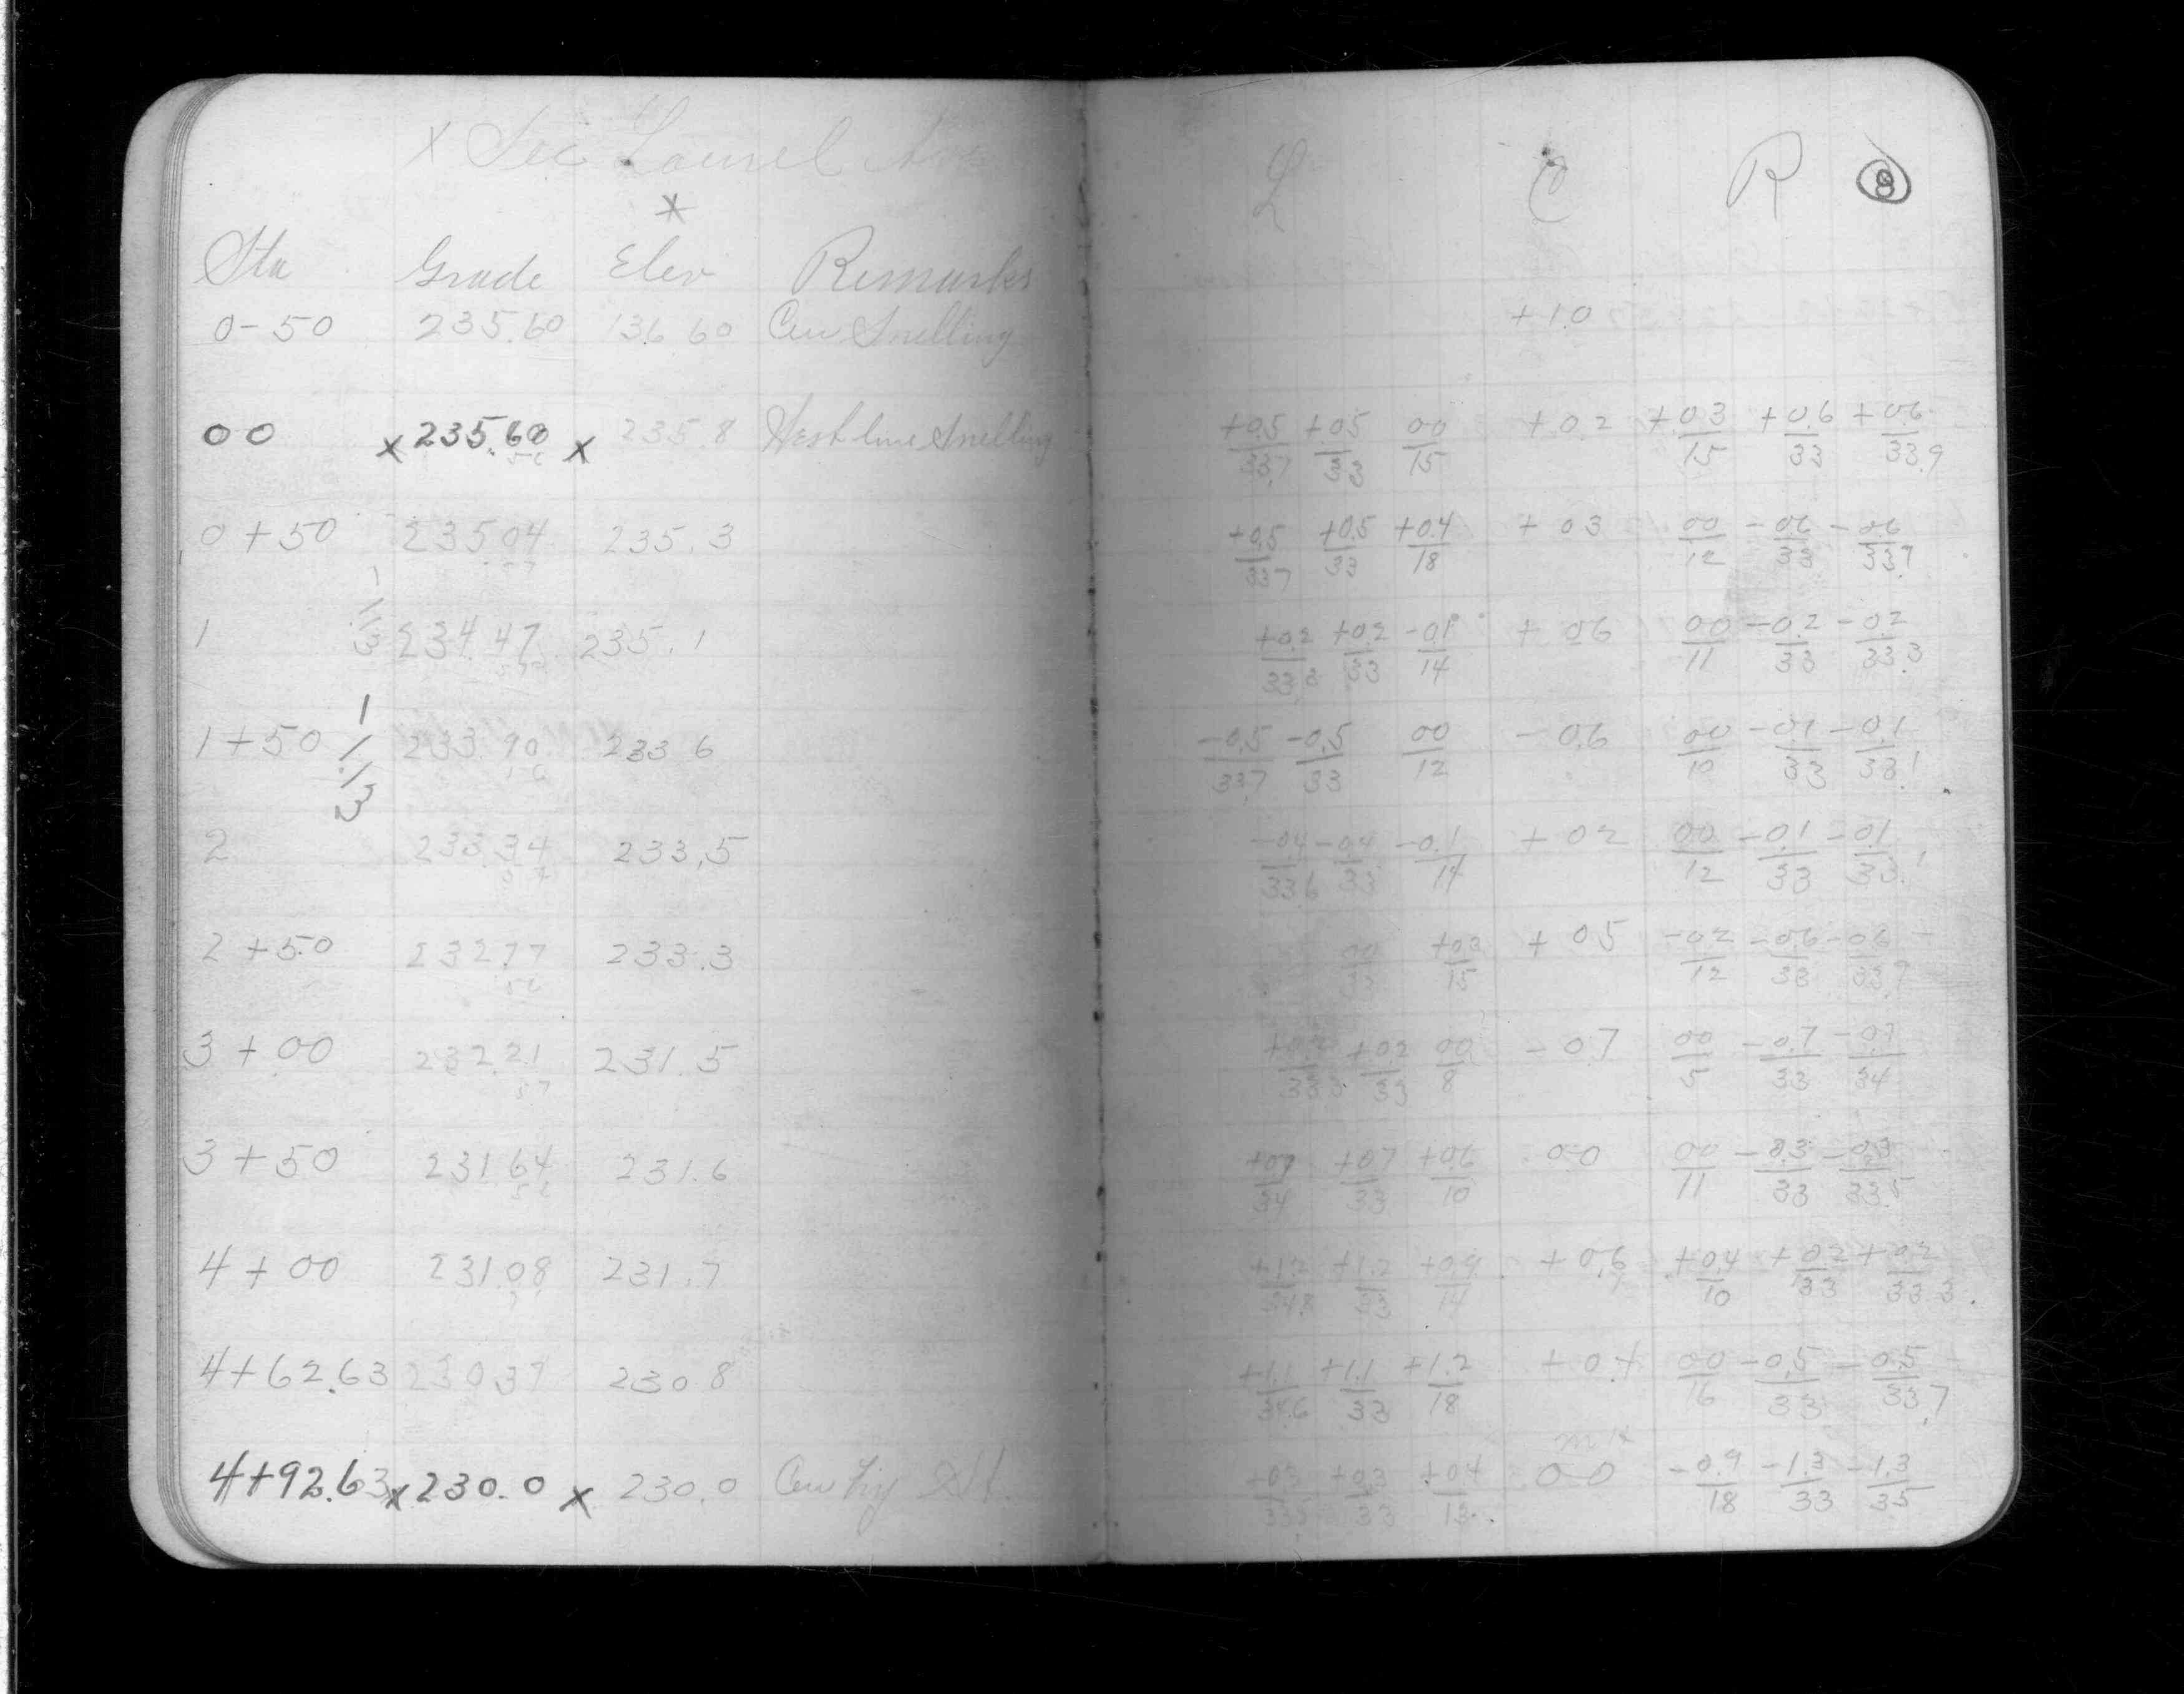 X Sec Laurel Ave
x
Sta Grade Elev Remarks
0-50 235.60 136 60 Cen Snelling
00 x 235.60 x 235.8 West line Snelling
0+50 235 04 235.3
1 234.47 235.1
1+50 233.90 233 6
-1.13
-1.13
2 233.34 233.5
2+50 232 77 233.3
3+00 232.21 231.5
3+50 231 64 231.6
4+00 231.08 231.7
4+62.63 230 37 230 8
4+92.63 x 230.0 x 230.0 Cen
L C R 8
+1.0
+0.5/33.7 +0.5/33 00/15 +0.2 +0.3/15 +0.6/33 +06/33.9
+0.5/33.7 +0.5/33 +0.4/18 +03 00/12 -06/33 -06/33.7
+0.2/33 3 +0.2/33 -0.1/14 +06 00/11 -0.2/33 -02/33.3
-0.5/33.7 -0.5/33 00/12 -0.6 00/10 -0.1/33 -0.1/33.1
-04/33 6 -0.4/33 -0.1/14 +02 00/12 -0.1/33 -0.1/33.1
00/33 +03/15 +05 -02/12 -06/33 -06/33.7
+02/33 00/8 -07 00/5 -0.7/33 -07/34
+07/34 +07/33 +06/10 0.0 00/11 -0.3/33 -0.3/33.5
+1.2/34.8 +1.2/33 +0.9/14 +0.6 +0.4/10 +0.2/33 +0.2/33 3
+1.1/34.6 +1.1/33 +1.2/18 +0.4 00/16 -0.5/33 -0.5/33.7
+03/33.5 +0.3/33 +04/13 0.0 -0.9/18 -1.3/33 -1.3/35